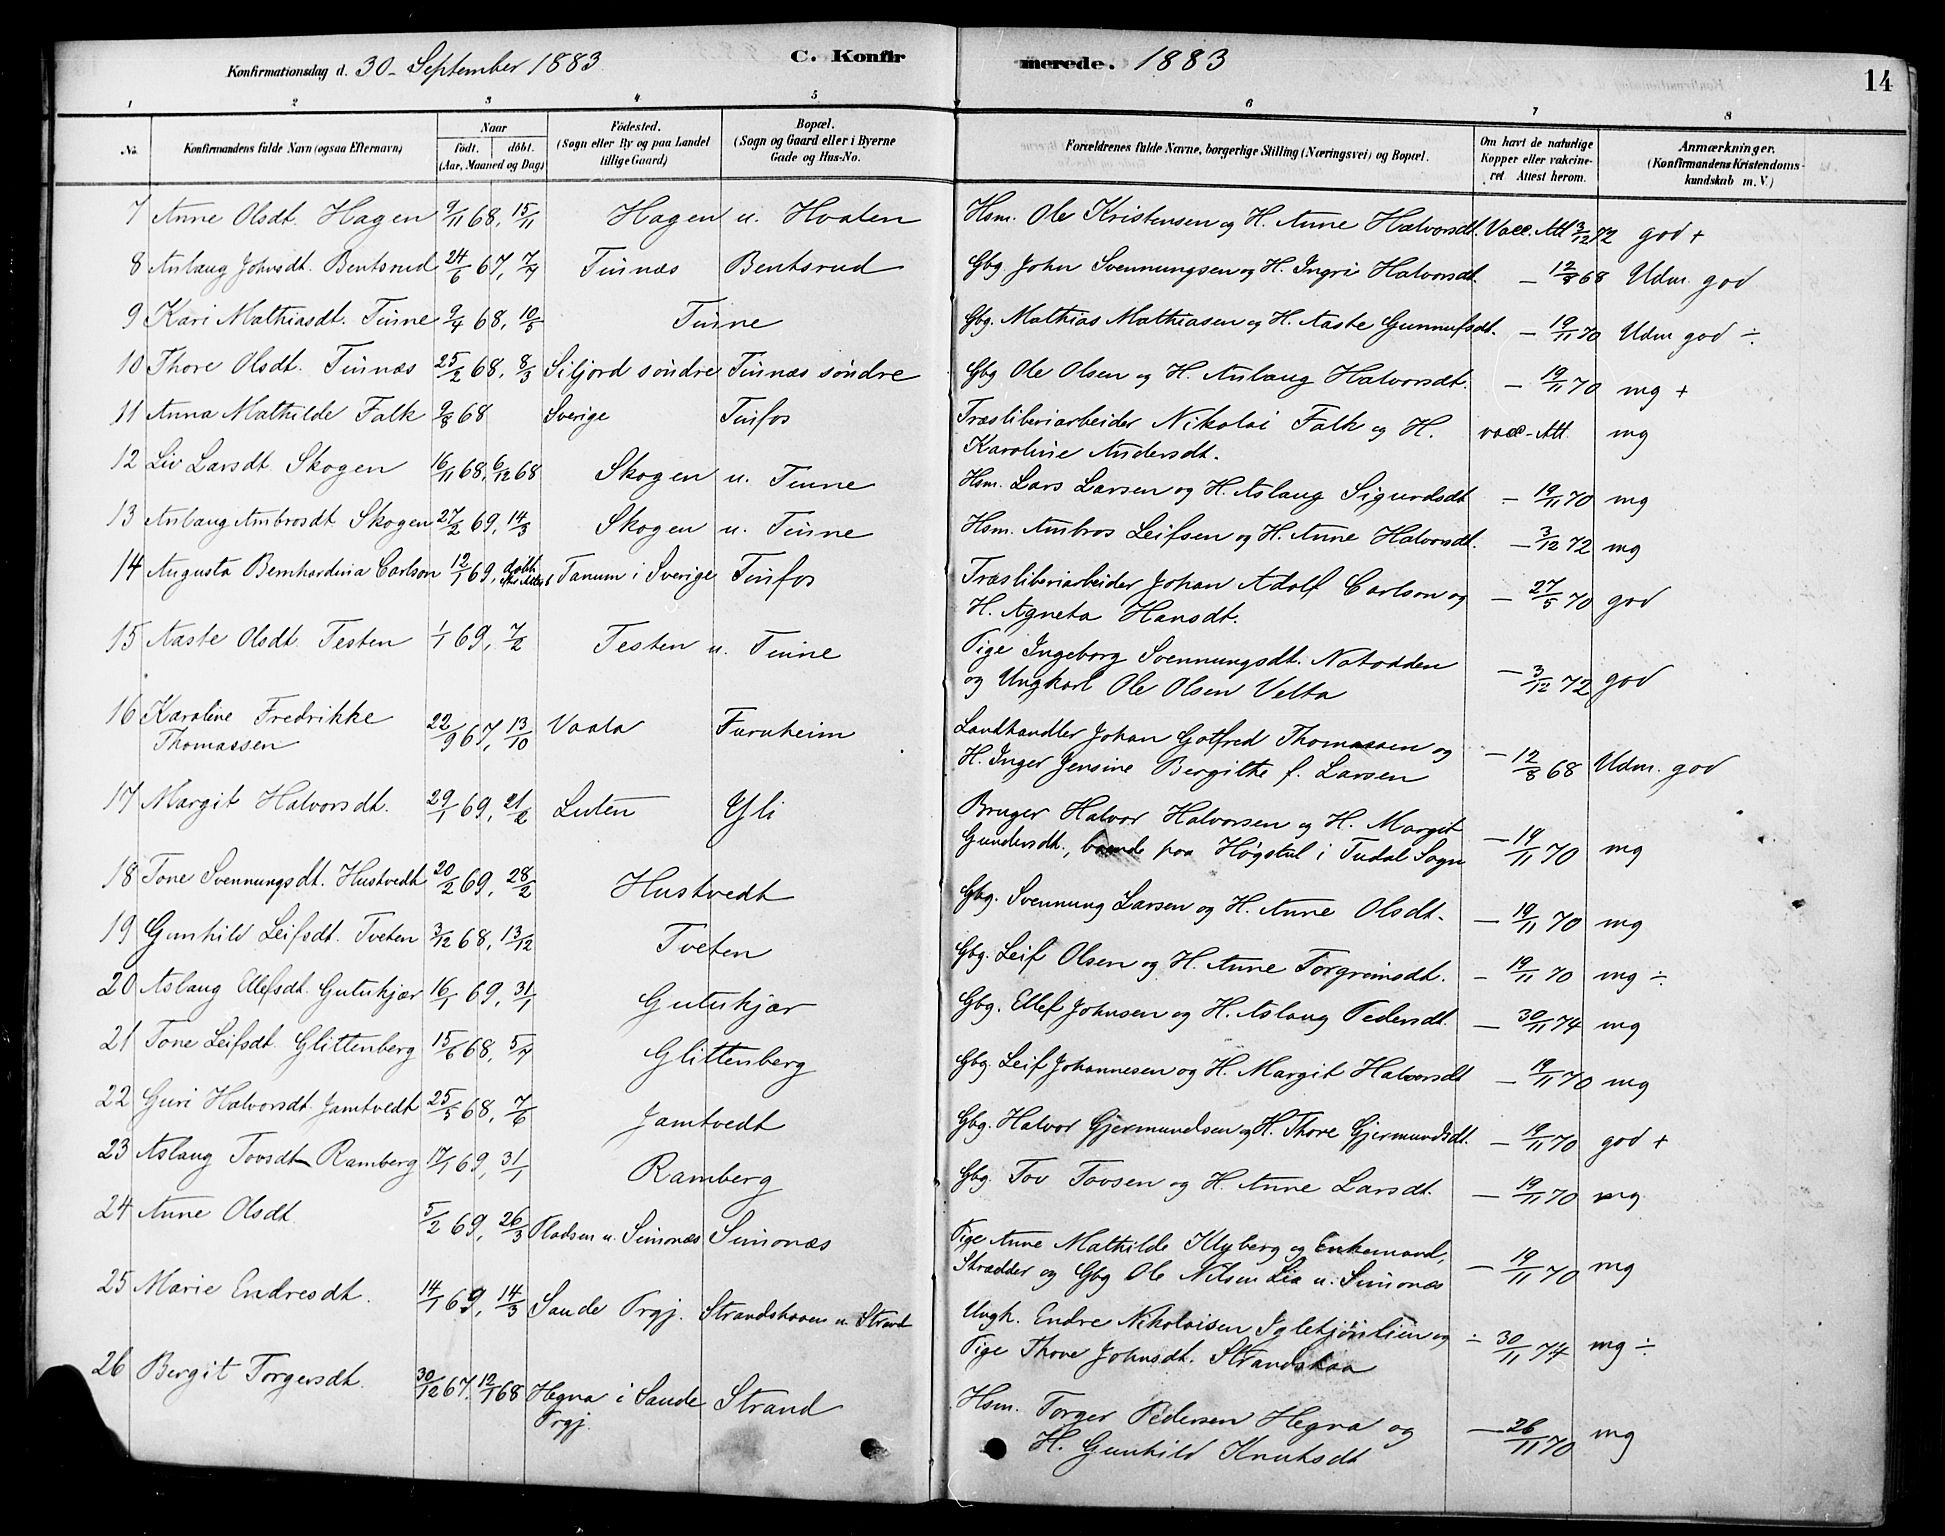 Konfirmationsdag d. 30. September 1883 C. Konfirmerede. 1883 14
1 2 3 4 5 6 7 8
No. Konfirmandens fulde Navn (ogsaa Efternavn) Naar födt. döbt. (Aar, Maaned og Dag) Födested. (Sogn eller By og paa Landet tillige Gaard) Bopæl. (Sogn og Gaard eller i Byerne Gade og Hus-No. Forældrenes fulde Navne, borgerlige Stilling (Næringsvei) og Bopæl. Om havt de naturlige Kopper eller vakcineret Attest herom. Anmærkninger. (Konfirmandens Kristendomskundskab m. V.)
7 Anne Olsdt. Hagen 9/11 68, 15/11 Hagen u. Hvalen Hsm. Ole Kristensen og H. Anne Halvorsdt. Vacc. Att 3/12 72 god +
8 Aslaug Johnsdt. Bentsrud 24/6 67, 7/7 Tinnæs Bentsrud Gbg. John Svennungsen og H. Ingri Halvorsdt. — 12/8 68 Udm. god
9 Kari Mathiasdt. Tinne 9/4 68, 10/5 Tinne Gbg. Mathias Mathiasen og H. Aaste Gunnufsdt. — 19/11 70 Udm god ÷
10 Thore Olsdt. Tinnæs 25/2 68, 8/3 Siljord söndre Tinnæs söndre Gbg Ole Olsen og H. Aslaug Halvorsdt. — 19/11 70 mg +
11 Anna Mathilde Falk 9/8 68 Sverige Tinfos Træsliberiarbeider Nikolai Falk og H. vacc. Att. mg
Karoline Andersdt.
12 Liv Larsdt. Skogen 16/11 68, 6/12 68 Skogen u. Tinne Hsm. Lars Larsen og H. Aslaug Sigurdsdt — 19/11 70 mg
13 Aslaug Ambrosdt. Skogen 27/2 69, 14/3 Skogen u. Tinne Hsm. Ambros Leifsen og H. Anne Halvorsdt. — 3/12 72 mg
14 Augusta Bernhardina Carlson 12/1 69, döbt Tanum i Sverige Tinfos Træsliberiarbeider Johan Adolf Carlson og — 27/5 70 god
H. Agneta Hansdt.
15 Aaste Olsdt. Testen 1/1 69, 7/2 Testen u. Tinne Pige Ingeborg Svennungsdt. Notodden — 3/12 72 god
og Ungkarl Ole Olsen Velta
16 Karoline Fredrikke 22/9 67, 13/10 Vaala Furuheim Landhandler Johan Gotfred Thomassen og — 12/8 68 Udm. god
Thomassen H. Inger Jensine Bergithe f. Larsen
17 Margit Halvorsdt. 29/1 69, 21/2 Luten Yli Bruger Halvor Halvorsen og H. Margit — 19/11 70 mg
Gundersdt., boende paa Högstul i Tudal Sogn
18 Tone Svennungsdt. Hustvedt 20/2 69, 28/2 Hustvedt Gbg. Svennung Larsen og H. Anne Olsdt. — 19/11 70 mg
19 Gunhild Leifsdt. Tveten 3/12 68, 13/12 Tveten Gbg. Leif Olsen og H. Anne Torgrimsdt. — 19/11 70 mg ÷
20 Aslaug Ellefsdt. Gutukjær 16/1 69, 31/1 Gutukjær Gbg. Ellef Johnsen og H. Aslaug Pedersdt. — 30/11 74 mg
21 Tone Leifsdt. Glittenberg 15/6 68, 5/7 Glittenberg Gbg. Leif Johannesen og H. Margit Halvorsdt — 19/11 70 mg
22 Guri Halvorsdt. Jamtvedt 25/5 68, 7/6 Jamtvedt Gbg. Halvor Gjermundsen og H. Thore Gjermundsdt. — 19/11 70 god +
23 Aslaug Tovsdt Ramberg 17/1 69, 31/1 Ramberg Gbg. Tov Tovsen og H. Anne Larsdt. — 19/11 70 mg
24 Anne Olsdt. 5/2 69, 26/3 Pladsen u. Simonæs Simonæs Pige Anne Mathilde Klyberg og Enkemand, — 19/11 70 mg
Skrædder og Gbg Ole Nilsen Lia u. Simonæs
25 Marie Endresdt. 14/1 69, 14/3 Saude Prgj. Strandskaaen u. Strand Ungk. Endre Nikolaisen Igletjönlien og ÷ 30/11 74 mg ÷
Pige Thone Johnsdt. Strandskaa
26 Bergit Torgersdt. 30/12 67, 12/1 68 Hegna i Saude Strand Hsm. Torger Pedersen Hegna og — 26/11 70 mg
Prgj. H. Gunhild Knutsdt